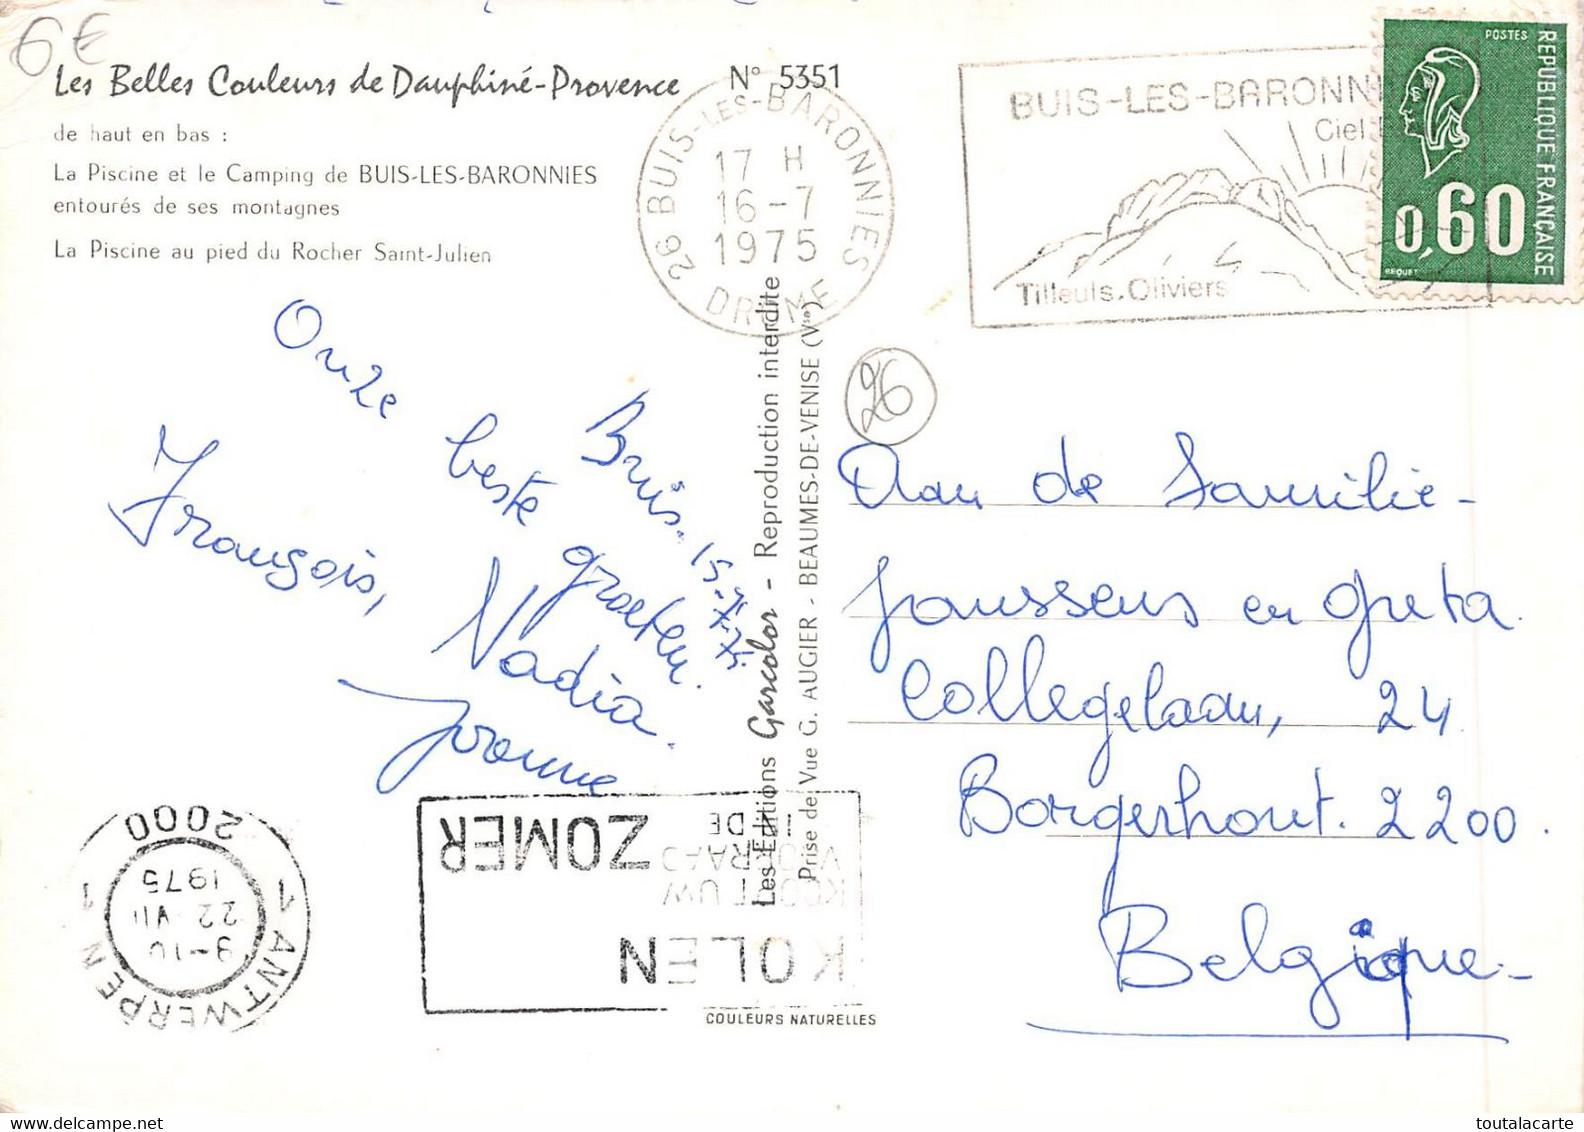 6€
Les Belles Couleurs de Dauphiné-Provence
N° 5351
de haut en bas :
La Piscine et le Camping de BUIS-LES-BARONNIES
entourés de ses montagnes
La Piscine au pied du Rocher Saint-Julien
26 BUIS-LES-BARONNIES
17 H
16-7
1975
DROME
BUIS-LES-BARONN
Ciel
Tilleuls. Oliviers
POSTES
REPUBLIQUE FRANÇAISE
0,60
BEQUET
26
Buis. 15-7-75
Onze beste groeten.
François, Nadia.
Yvonne
Aan de Familie-
Janssens en Greta.
Collegelaan, 24.
Borgerhout. 2200.
Belgique-
Les Editions Garcolor - Reproduction interdite
Prise de Vue G. AUGIER - BEAUMES-DE-VENISE (Vse)
COULEURS NATURELLES
KOLEN
KOOPT UW
VOORRAAD
IN DE
ZOMER
1 ANTWERPEN 1
22 VII
1975
2000
toutalacarte
Delcampe.net